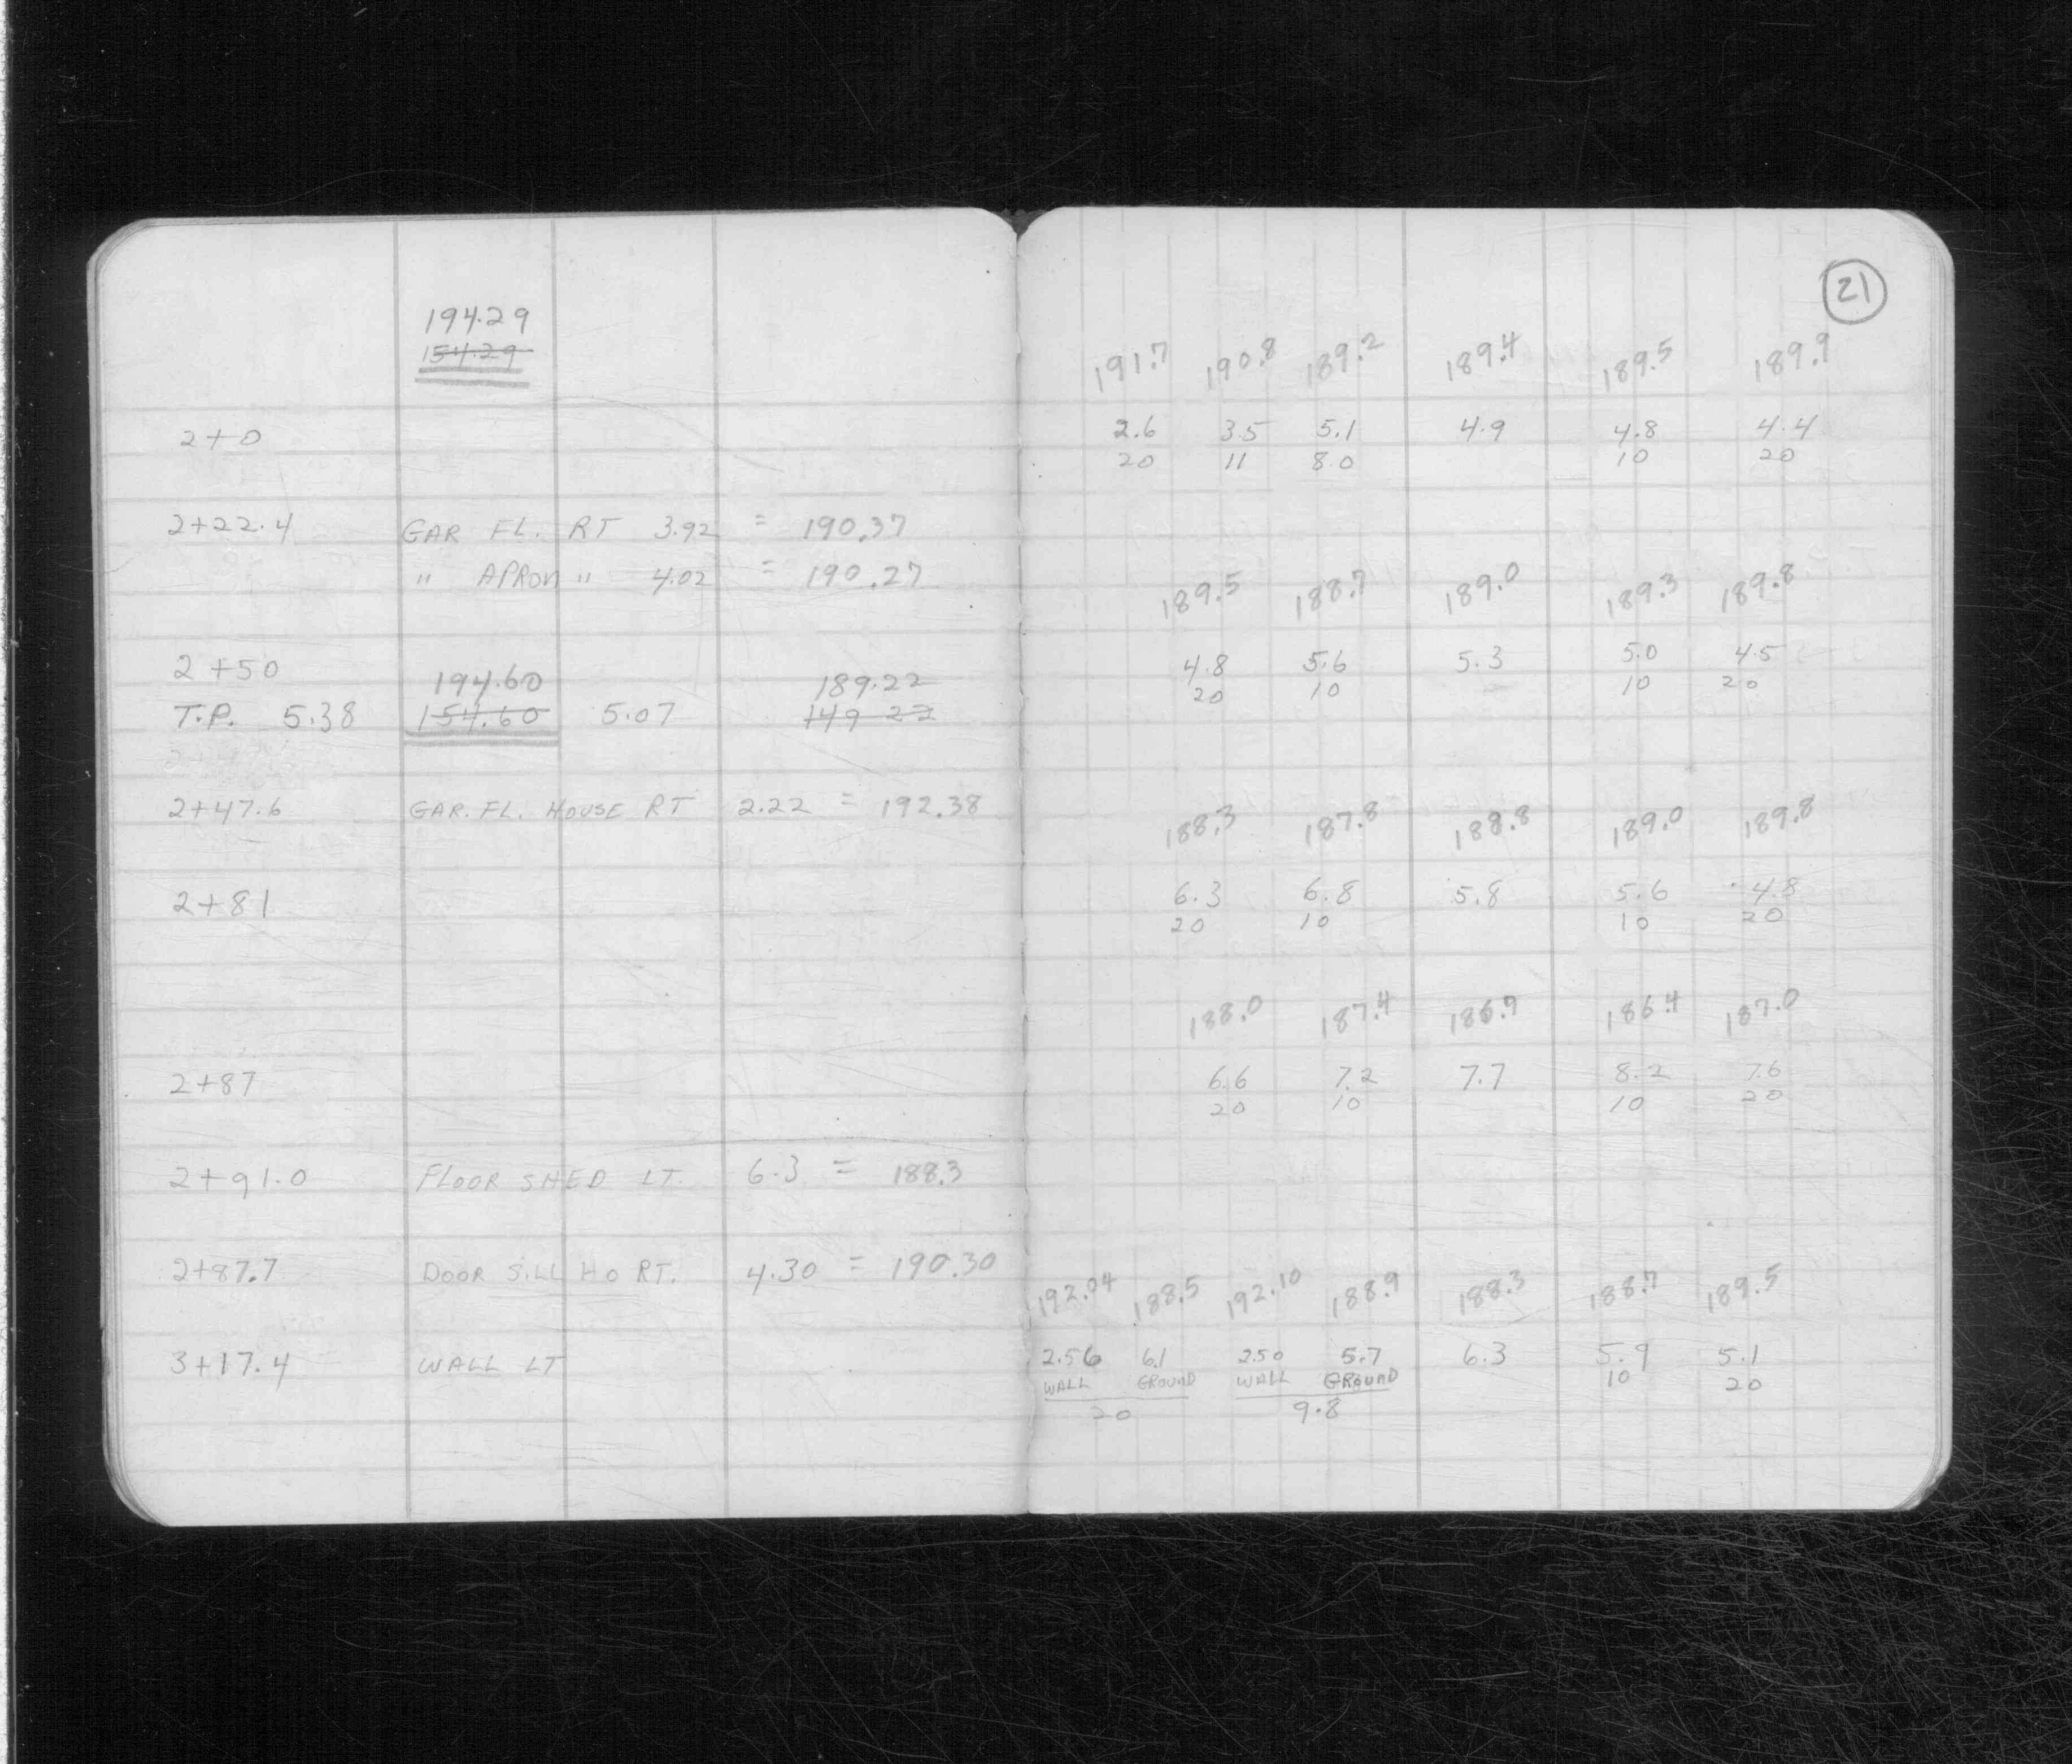 194.29
154.29
2+0
2+22.4 GAR FL. RT 3.92 = 190.37
" APRON " 4.02 = 190.27
2+50
194.60 189.22
T.P. 5.38 154.60 5.07 149 22
2+47.6 GAR. FL. HOUSE RT 2.22 = 192.38
2+81
2+87
2+91.0 FLOOR SHED LT. 6.3 = 188.3
2+87.7 DOOR SILL HO RT. 4.30 = 190.30
3+17.4 WALL LT
21
191.7 190.8 189.2 189.4 189.5 189.9
2.6 3.5 5.1 4.9 4.8 4.4
20 11 8.0 10 20
189.5 188.7 189.0 189.3 189.8
4.8 5.6 5.3 5.0 4.5
20 10 10 20
188.3 187.8 188.8 189.0 189.8
6.3 6.8 5.8 5.6 4.8
20 10 10 20
188.0 187.4 186.9 186.4 187.0
6.6 7.2 7.7 8.2 7.6
20 10 10 20
192.04 188.5 192.10 188.9 188.3 188.7 189.5
2.56 6.1 2.50 5.7 6.3 5.9 5.1
WALL GROUND WALL GROUND 10 20
20 9.8